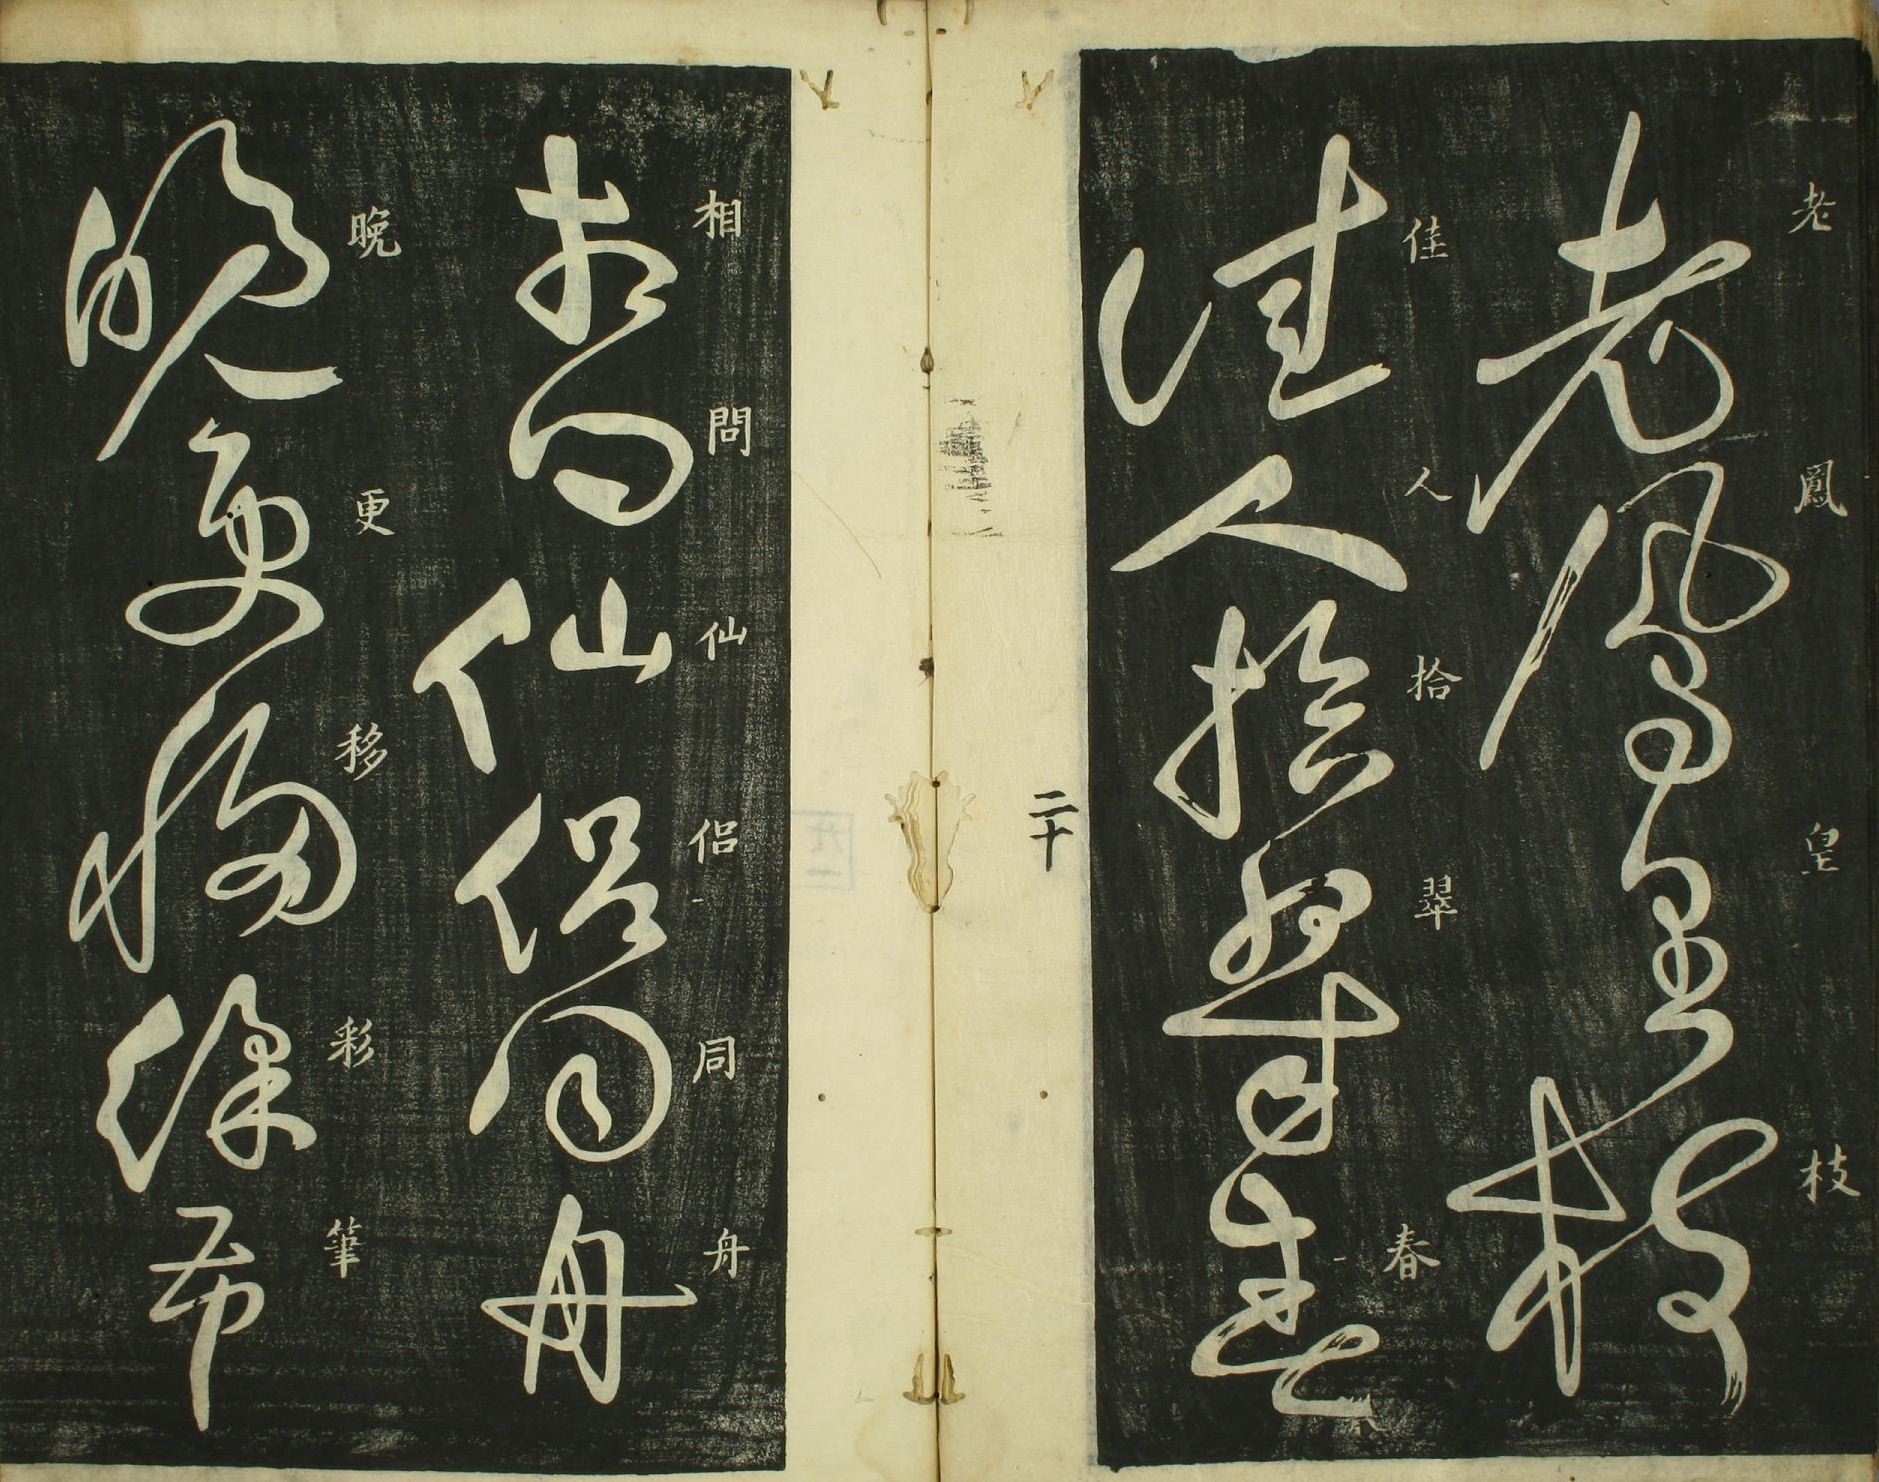 老鳳皇枝
佳人拾翠春
二十
相問仙侶同舟
晚更移彩筆